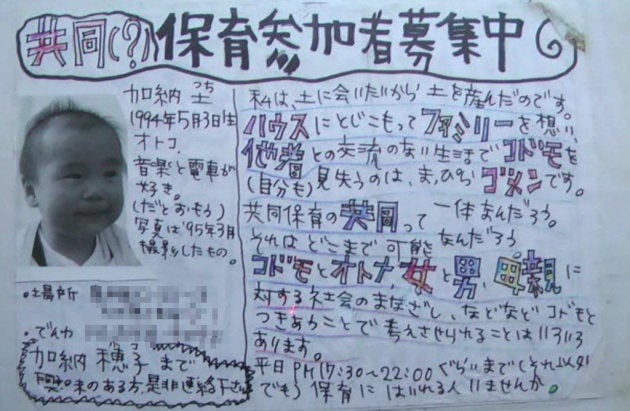 共同(?)保育参加者募集中
加納 土
つち
1994年5月3日生
オトコ。
音楽と電車が
好き。
(だとおもう)
写真は'95年3月
撮影したもの。
・場所
・でんわ
加納 穂子まで
興味のある方、是非連絡下さい
私は、土に会いたいから土を産んだのです。
ハウスにとじこもってファミリーを想い、
他者との交流のない生活でコドモを
(自分も)見失うのは、まっぴらゴメンです。
共同保育の共同って一体なんだろう。
それはどこまで可能なんだろう。
コドモとオトナ、女と男、母親に
対する社会のまなざし、などなどコドモと
つきあうことで考えさせられることはいろいろ
あります。
平日PM17:30~22:00ぐらいまで(それ以外
でも)保育にはいれる人いませんか。